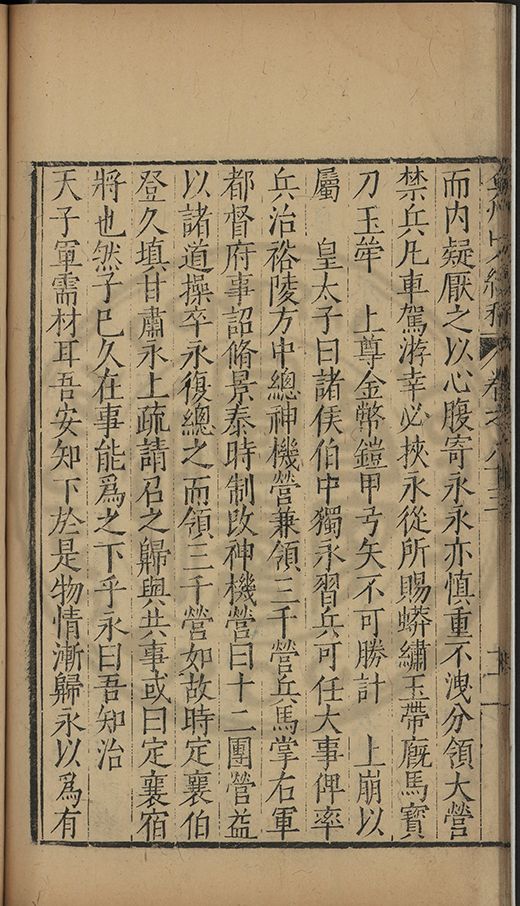 而內疑厭之以心腹寄永永亦慎重不洩分領大營
禁兵凡車駕游幸必挾永從所賜蟒繡玉帶廐馬寶
刀玉斝　上尊金幣鎧甲弓矢不可勝計　上崩以
屬　皇太子曰諸侯伯中獨永習兵可任大事俾率
兵治裕陵方中總神機營兼領三千營兵馬掌右軍
都督府事詔脩景泰時制改神機營曰十二團營益
以諸道操卒永復總之而領三千營如故時定襄伯
登久填甘肅永上疏請召之歸與共事或曰定襄宿
將也然子巳久在事能爲之下乎永曰吾知治
天子軍需材耳吾安知下於是物情漸歸永以爲有